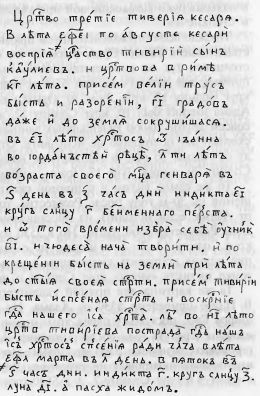 Црⷭ҇тво третїе тиверїѧ кесарѧ.
В лѣта ҂ефеі по августе кесари
воспрїѧ црⷭ҇аство тивирїй сынъ
каулиев. и црⷭ҇твова в римѣ
кг҃ лѣта. при сем велїи трусъ
бысть и разоренїи, гі҃ градовъ
даже и до землѧ сокрушишасѧ.
въ еі҃ лѣто хрⷭ҇тосъ ѿ іѡанна
во іорданьстѣй рѣцѣ, л҃ ти лѣтъ
возраста своего мцⷭ҇а генварѧ въ
ѕ҃ день в з҃ часъ дни индикта еі҃
кругъ слнцу г҃ беименнаго перⷭ҇та.
и ѿ того времени избра себѣ оучн҃икъ
ві҃. и чюдеса нача творити. и по
крещенїи бысть на земли три лѣта
до ст҃ыѧ своеѧ стрⷭ҇ти. при сем тивирїи
бысть испсе҃наѧ стрⷭ҇ть и воскрⷭ҇нїе
гдⷭ҇а нашего іс҃а хрⷭ҇та. въ ні҃ лѣто
црⷭ҇тва тивирїева пострада гдⷭ҇ь нашъ
іс҃ъ хрⷭ҇тосъ спⷭ҇сенїѧ ради в лѣта
марта въ л҃ день. в пѧтокъ въ
часъ дни. индикта г҃. кругъ слнцу з҃.
луна ді҃. а пасха жидом.